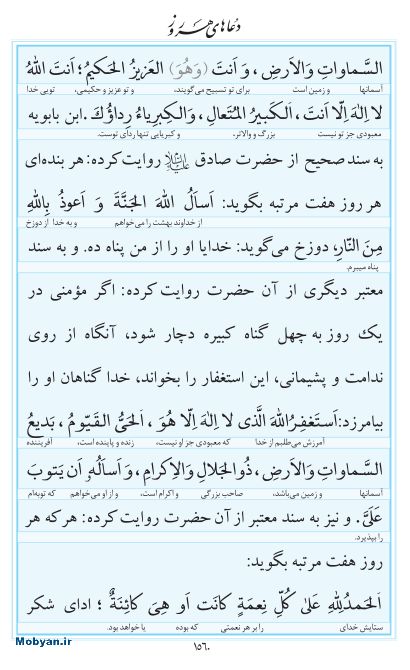 دعاهای هر روز
السَّماواتِ وَالاَرضِ، وَ اَنتَ (وَهُوَ) العَزیزُ الحَکیمُ؛ اَنتَ اللهُ
آسمانها و زمین است برای تو تسبیح می‌گویند، و تو عزیز و حکیمی، تویی خدا
لا اِلهَ اِلّا اَنتَ، اَلکَبیرُ المُتَعالِ، وَالکِبرِیاءُ رِداؤُکَ. ابن بابویه
معبودی جز تو نیست بزرگ و والاتر، و کبریایی تنها ردای توست.
به سند صحیح از حضرت صادق علیه‌السلام روایت کرده: هر بنده‌ای
هر روز هفت مرتبه بگوید: اَسأَلُ اللهَ الجَنَّةَ وَ اَعوذُ بِاللهِ
از خداوند بهشت را می‌خواهم و به خدا از دوزخ
مِنَ النّارِ، دوزخ می‌گوید: خدایا او را از من پناه ده. و به سند
پناه میبرم.
معتبر دیگری از آن حضرت روایت کرده: اگر مؤمنی در
یک روز به چهل گناه کبیره دچار شود، آنگاه از روی
ندامت و پشیمانی، این استغفار را بخواند، خدا گناهان او را
بیامرزد: اَستَغفِرُ اللهَ الَّذی لا اِلهَ اِلّا هُوَ، اَلحَیُّ القَیّومُ، بَدیعُ
آمرزش می‌طلبم از خدا که معبودی جز او نیست، زنده و پاینده است، آفریننده
السَّماواتِ وَالاَرضِ، ذُوالجَلالِ وَالاِکرامِ، وَ اَسأَلُهُ اَن یَتوبَ
آسمانها و زمین می‌باشد، صاحب بزرگی و اکرام است، و از او می‌خواهم که توبه‌ام
عَلَیَّ. و نیز به سند معتبر از آن حضرت روایت کرده: هر که هر
را بپذیرد.
روز هفت مرتبه بگوید:
اَلحَمدُ لِلّهِ عَلیٰ کُلِّ نِعمَةٍ کانَت اَو هِیَ کائِنَةٌ؛ ادای شکر
ستایش خدای را بر هر نعمتی که بوده یا خواهد بود.
۱۵۶۰
Mobyan.ir